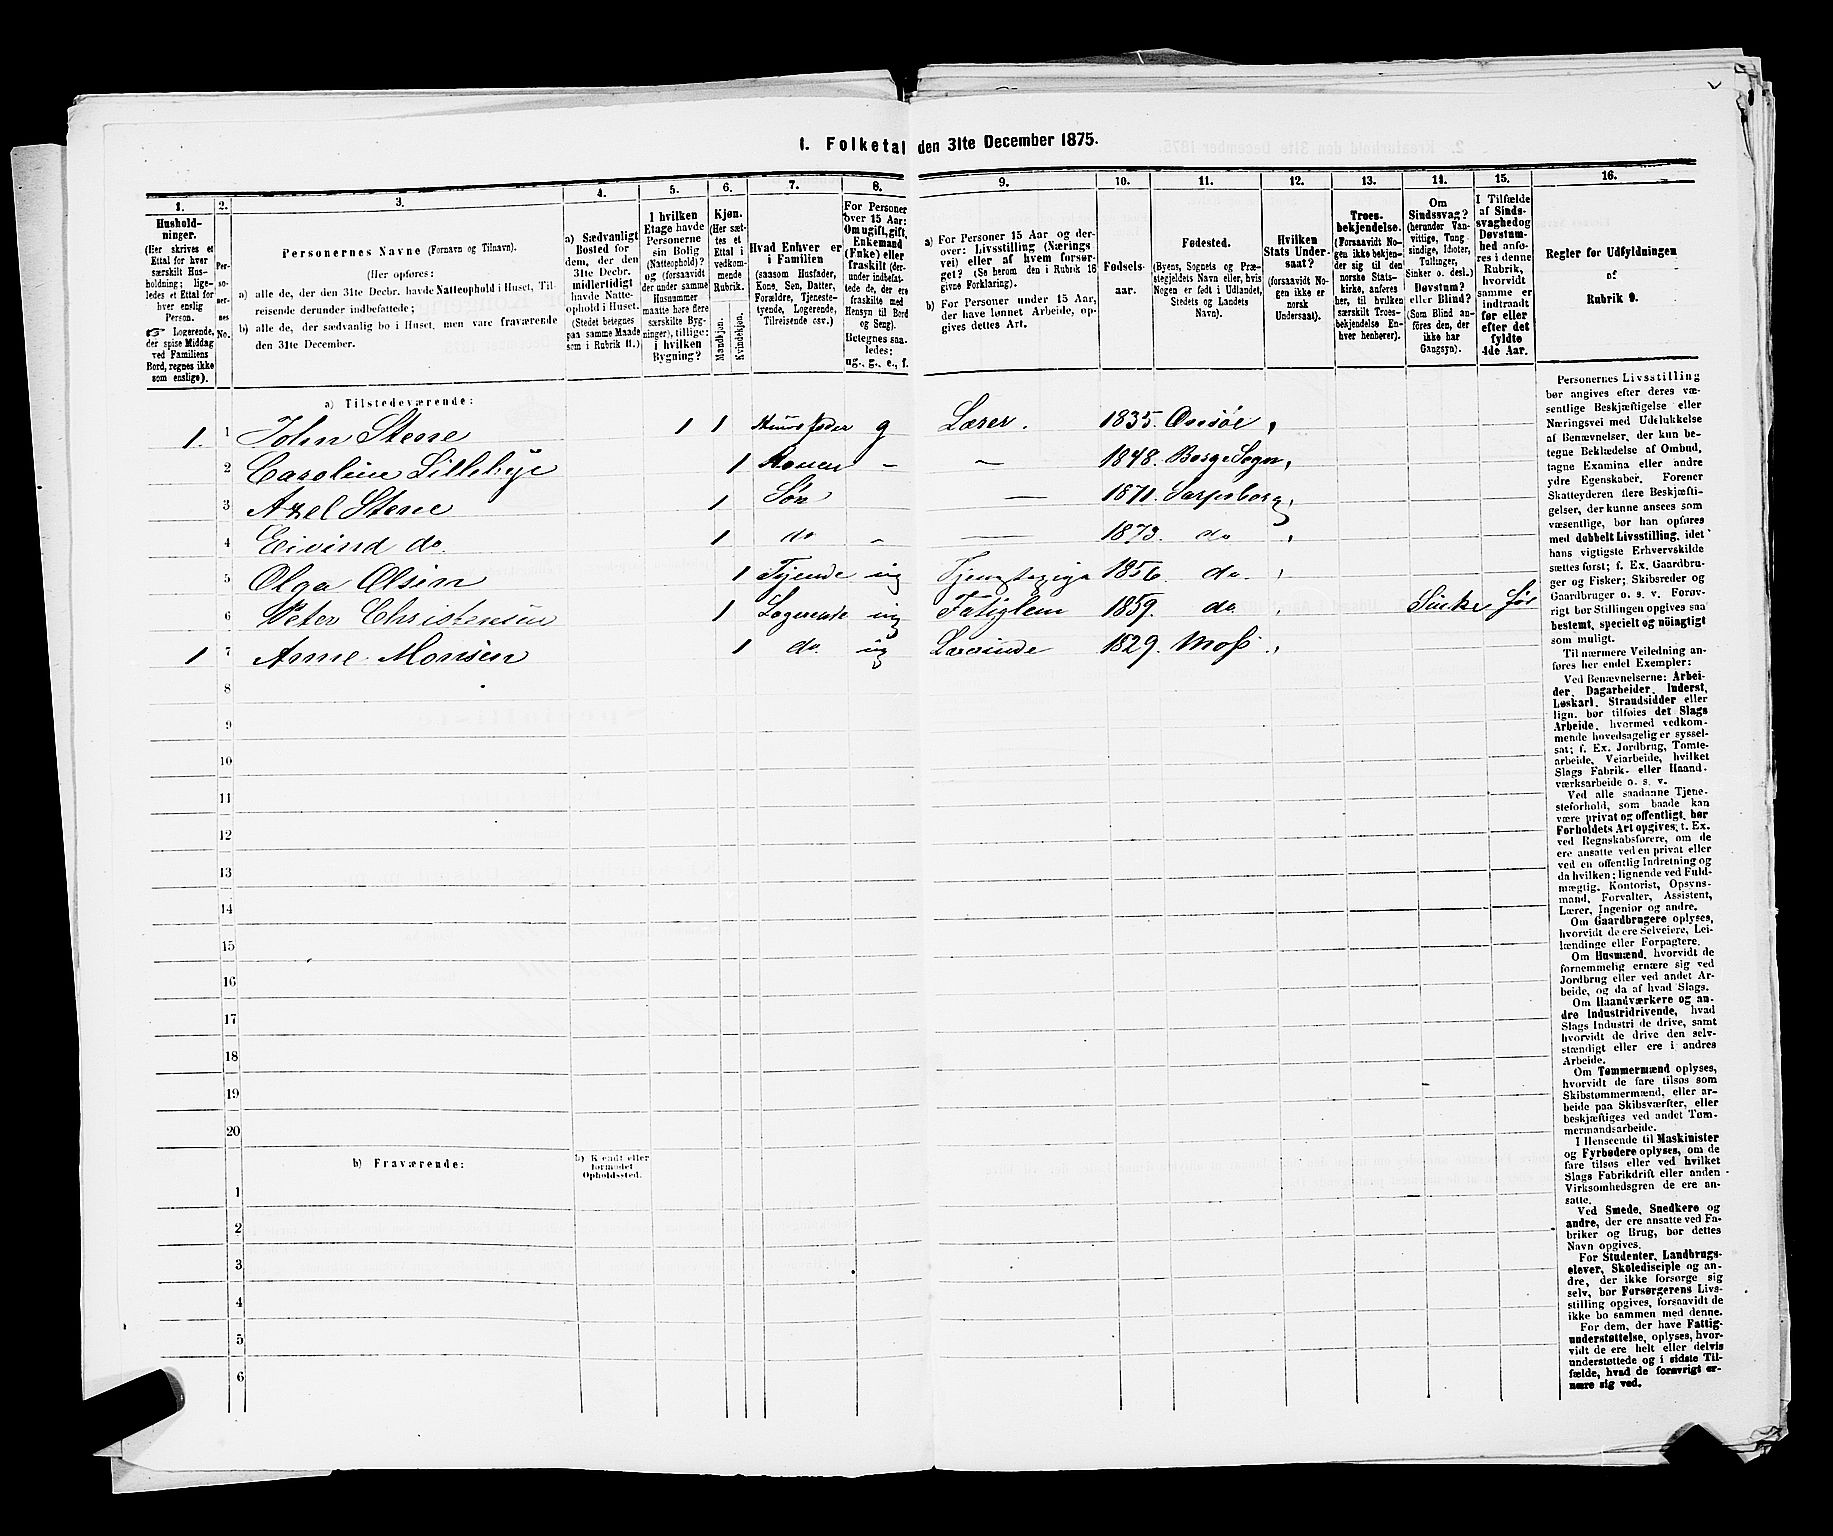 1. Folketal den 31te December 1875.
1. 2. 3. 4. 5. 6. 7. 8. 9. 10. 11. 12. 13. 14. 15. 16.
Hushold-
ninger.
(Her skrives et
Ettal for hver
særskilt Hus-
holdning; lige-
ledes et Ettal for
hver enslig
Person.
☞ Logerende,
der spise Middag
ved Familiens
Bord, regnes ikke
som enslige).
Per-
so-
ner-
nes
No.
Personernes Navne (Fornavn og Tilnavn).
(Her opføres:
a) alle de, der den 31te Decbr. havde Natteophold i Huset, Til-
reisende derunder indbefattede;
b) alle de, der sædvanlig bo i Huset, men vare fraværende
den 31te December.
a) Sædvanligt
Bosted for
dem, der den
31te Decbr.
midlertidigt
havde Natte-
ophold i Huset.
(Stedet betegnes
paa samme Maade
som i Rubrik 11.)
I hvilken
Etage havde
Personerne
sin Bolig
(Natteophold)?
og (forsaavidt
der under samme
Husnummer
maatte høre flere
særskilte Byg-
ninger), tillige:
i hvilken
Bygning?
Kjøn.
(Her sæt-
tes et
Ettal i
vedkom-
mende
Rubrik.
Mandkjøn.
Kvindekjøn.
Hvad Enhver er
i Familien
(saasom Husfader,
Kone, Søn, Datter,
Forældre, Tjeneste-
tyende, Logerende,
Tilreisende osv.)
For Personer
over 15 Aar:
Om ugift, gift,
Enkemand
(Enke) eller
fraskilt (der-
under indbefat-
tede de, der ere
fraskilte med
Hensyn til Bord
og Seng).
Betegnes saa-
ledes:
ug., g., e., f.
a) For Personer 15 Aar og der-
over: Livsstilling (Nærings
vei) eller af hvem forsør-
get? (Se herom den i Rubrik 16
givne Forklaring).
b) For Personer under 15 Aar,
der have lønnet Arbeide, op-
gives dettes Art.
Fødsels-
aar.
Fødested.
(Byens, Sognets og Præ-
stegjeldets Navn eller, hvis
Nogen er født i Udlandet,
Stedets og Landets
Navn).
Hvilken
Stats Under-
saat?
(forsaavidt No-
gen ikke er
norsk
Undersaat).
Troes-
bekjendelse.
(Forsaavidt No-
gen ikke bekjen-
der sig til den
norske Stats-
kirke, anføres
her, til hvilken
særskilt Troes-
bekjendelse En-
hver henhører).
Om
Sindssvag?
(herunder Van-
vittige, Tung-
sindige, Idioter,
Tullinger,
Sinker o. desl.)
Døvstum?
eller Blind?
(Som Blind an-
føres den, der
ikke har
Gangsyn).
I Tilfælde
af Sinds-
svaghed og
Døvstum-
hed anfø-
res i denne
Rubrik,
hvorvidt
samme er
indtraadt
før eller
efter det
fyldte
4de Aar.
Regler for Udfyldningen
af
Rubrik 9.
a) Tilstedeværende:
1. 1 John Stene 1 1 Huusfader g Lærer. 1835. Ovesöe
2 Caroline Lilleby 1 Konen - - 1848. Borge Sogn
3 Axel Stene 1 Søn — 1871. Sarpsborg
4 Eivind do 1 do - — 1873. do
5 Olga Olsen 1 Tyende ug 1856. do.
6 Peter Christensen 1 Logerende ug Fatiglem 1859. do Sinke før
1 7 Anne Monsen 1 do. ug Lærerinde 1829. Moss
8
9
10
11
12
13
14
15
16
17
18
19
20
b) Fraværende:
b) Kjendt eller
formodet
Opholdssted.
1
2
3
4
5
6
Personernes Livsstilling
bør angives efter deres væ-
sentlige Beskjæftigelse eller
Næringsvei med Udelukkelse
af Benævnelser, der kun be-
tegne Beklædelse af Ombud,
tagne Examina eller andre
ydre Egenskaber. Forener
Skatteyderen flere Beskjæfti-
gelser, der kunne ansees som
væsentlige, bør han opføres
med dobbelt Livsstilling, idet
hans vigtigste Erhvervskilde
sættes først; f. Ex. Gaardbru-
ger og Fisker; Skibsreder og
Gaardbruger o. s. v. Forøv-
rigt bør Stillingen opgives saa
bestemt, specielt og nöiagtigt
som muligt.
Til nærmere Veiledning an-
føres her endel Exempler:
Ved Benævnelserne: Arbei-
der, Dagarbeider, Inderst,
Løskarl, Strandsidder eller
lign. bør tilføies det Slags
Arbeide, hvormed vedkom-
mende hovedsagelig er syssel-
sat; f. Ex. Jordbrug, Tomte-
arbeide, Veiarbeide, hvilket
Slags Fabrik- eller Haand-
værksarbeide o. s. v.
Ved alle saadanne Tjene-
steforhold, som baade kan
være privat og offentligt, bør
Forholdets Art opgives; t. Ex.
ved Regnskabsførere, om de
ere ansatte ved en privat eller
ved en offentlig Indretning og
da hvilken; lignende ved Fuld-
mægtig, Kontorist, Opsyns-
mand, Forvalter, Assistent,
Lærer, Ingeniør og andre.
Om Gaardbrugere oplyses,
hvorvidt de ere Selveiere, Lei-
lændinge eller Forpagtere.
Om Husmænd, hvorvidt de
fornemmelig ernære sig ved
Jordbrug eller ved andet Ar-
beide, og da af hvad Slags.
Om Haandværkere og an-
dre Industridrivende, hvad
Slags Industri de drive, samt
hvorvidt de drive den selv-
stændigt eller ere i andres
Arbeide.
Om Tømmermænd oplyses,
hvorvidt de fare tilsøs som
Skibstømmermænd, eller ar-
beide paa Skibsværfter, eller
beskjæftiges ved andet Tøm-
mermandsarbeide.
I Henseende til Maskinister
og Fyrbødere oplyses, om de
fare tilsøs eller ved hvilket
Slags Fabrikdrift eller anden
Virksomhedsgren de ere an-
satte.
Ved Smede, Snedkere og
andre, der ere ansatte ved Fa-
briker og Brug, bør dettes
Navn opgives.
For Studenter, Landbrugs-
elever, Skoledisciple og an-
dre, der ikke forsørge sig
selv, bør Forsørgerens Livs-
stilling opgives, forsaavidt de
ikke bo sammen med denne.
For dem, der have Fattig-
understøttelse, oplyses, hvor-
vidt de ere helt eller delvis
understøttede og i sidste Til-
fælde, hvad de forøvrigt er-
nære sig ved.